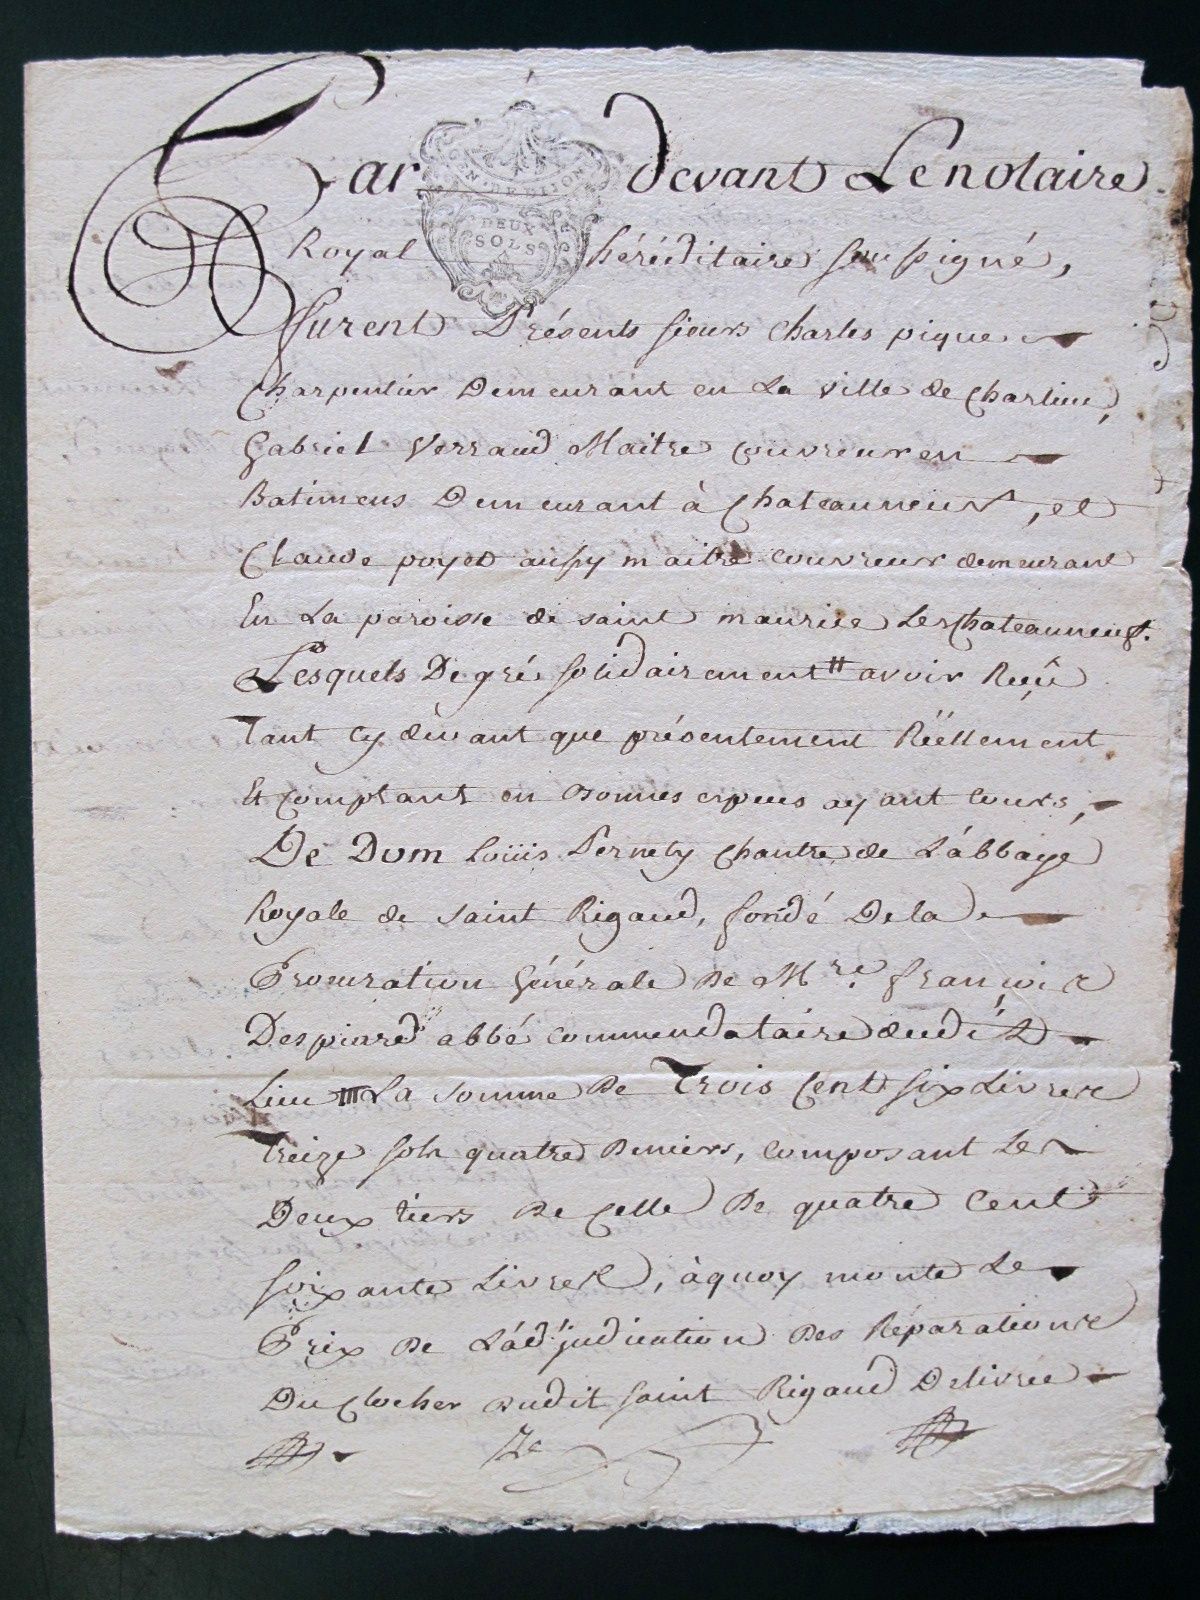 Par devant Le notaire
GN. DE LION
DEUX
SOLS
Royal héréditaire soussigné,
furent Présents sieurs Charles pique
Charpentier Demeurant en La Ville de Charlieu,
Gabriel Verraud Maitre couvreur en
Batimens Demeurant à Chateauneuf, et
Claude poyet aussy maitre couvreur demeurant
En La paroisse de saint maurice Les Chateauneuf.
Lesquels De gré solidairement # avoir Reçû
Tant cy devant que présentement Réëllement
Et Comptant en Bonnes espèces ayant cours,
De Dom loüis Pernety Chantre de L'abbaye
Royale de saint Rigaud, fondé De la
Procuration Générale De Mre. françois
Despiard abbé commendataire dudit
Lieu La somme De Trois Cent six Livres
Treize sols quatre Deniers, composant Les
Deux tiers De Celle De quatre Cent
soixante Livres, à quoy monte Le
Prix De L'adjudication Des Réparations
Du Clocher dudit saint Rigaud Delivrée